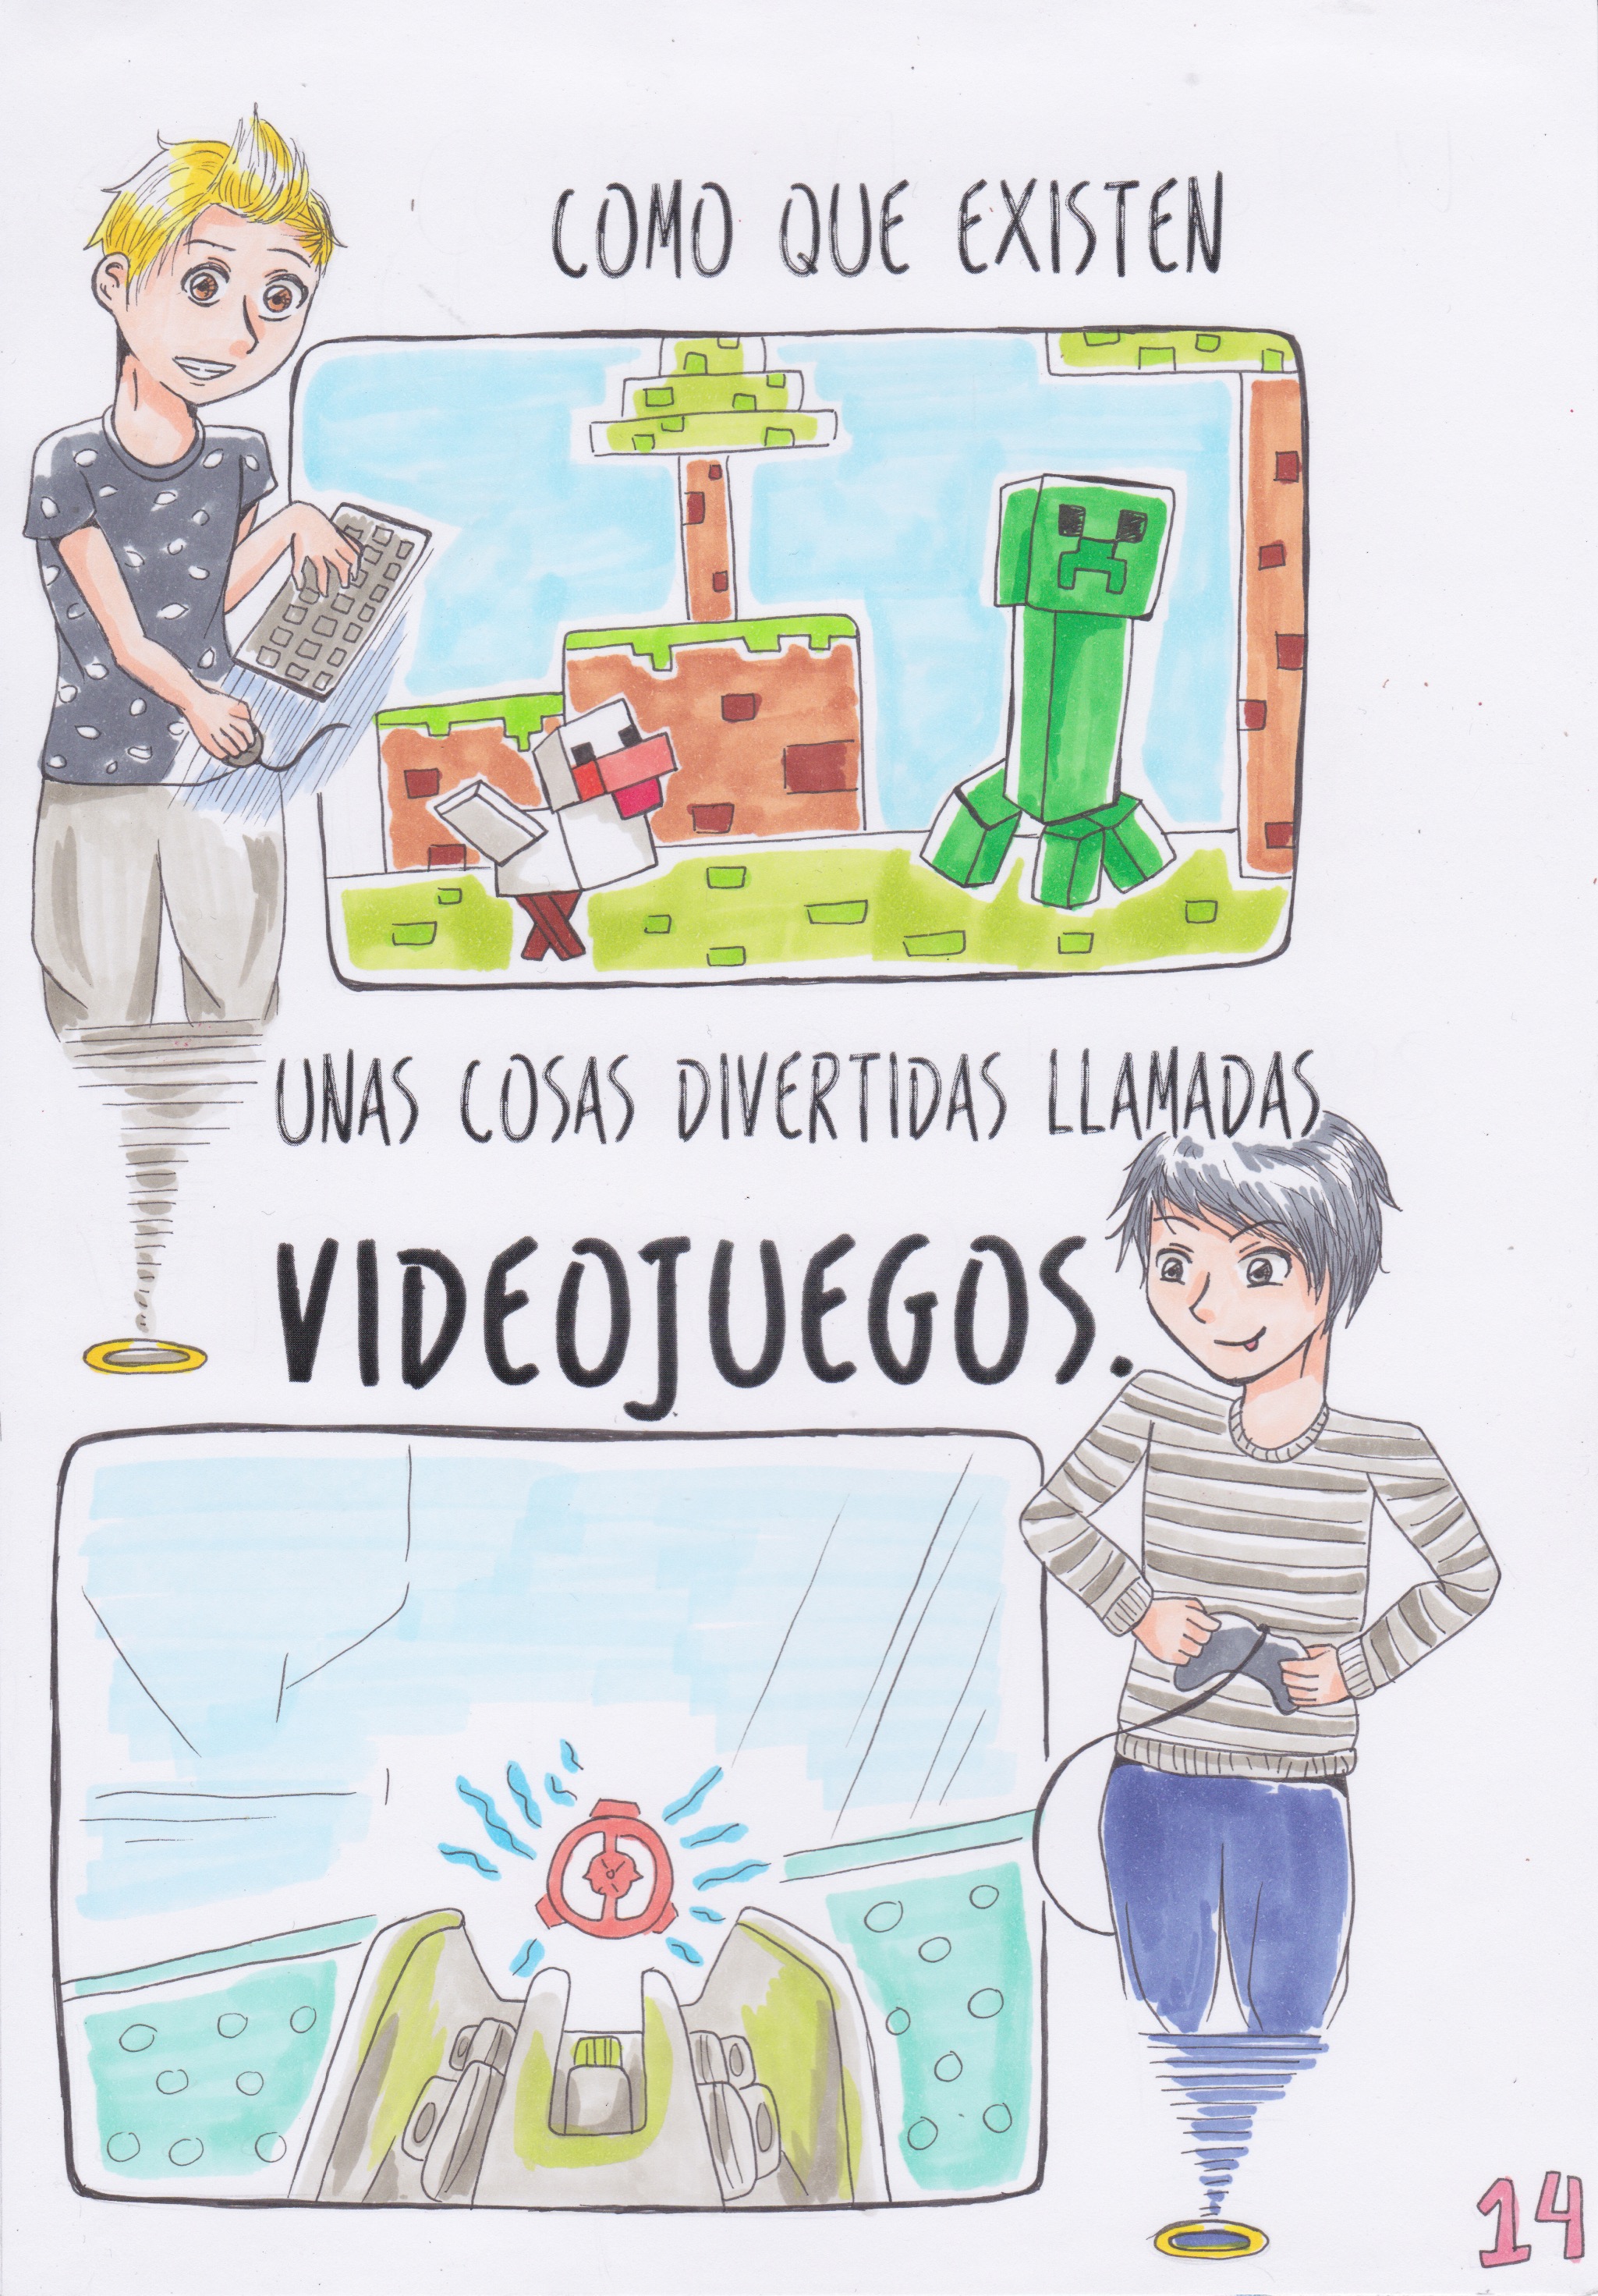 COMO QUE EXISTEN
UNAS COSAS DIVERTIDAS LLAMADAS
VIDEOJUEGOS.
14